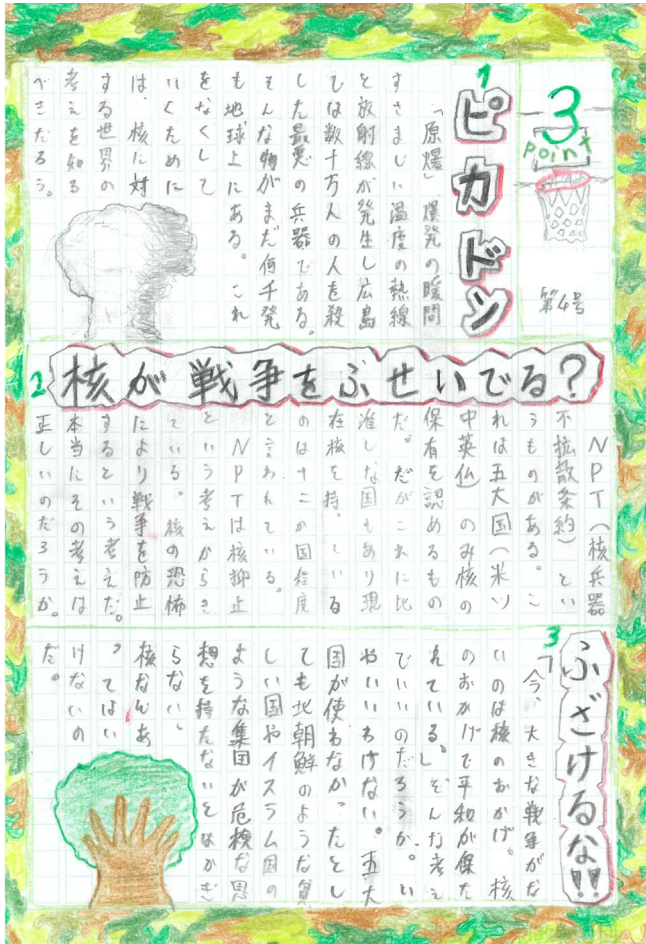 3
point
第4号
1
ピカドン
「原爆」爆発の瞬間
すさまじい温度の熱線
と放射線が発生し広島
では数十万人の人を殺
した最悪の兵器である。
そんな物がまだ何千発
も地球上にある。これ
をなくして
いくために
は、核に対
する世界の
考えを知る
べきだろう。
2
核が戦争をふせいでる?
NPT(核兵器
不拡散条約)とい
うものがある。こ
れは五大国(米ソ
中英仏)のみ核の
保有を認めるもの
だ。だがこれに比
准しな国もあり現
在核を持っている
のは十二か国程度
と言われている。
NPTは核抑止
という考えからき
ている。核の恐怖
により戦争を防止
するという考えだ。
本当にその考えは
正しいのだろうか。
3
ふざけるな!!
「今、大きな戦争がな
いのは核のおかげ。核
のおかげで平和が保た
れている。」そんな考え
でいいのだろうが。い
やいいわけない。五大
国が使わなかったとし
ても北朝鮮のような貧
しい国やイスラム国の
ような集団が危検な思
想を持たないとはかぎ
らない。
核なんあ
ってはい
けないの
だ。